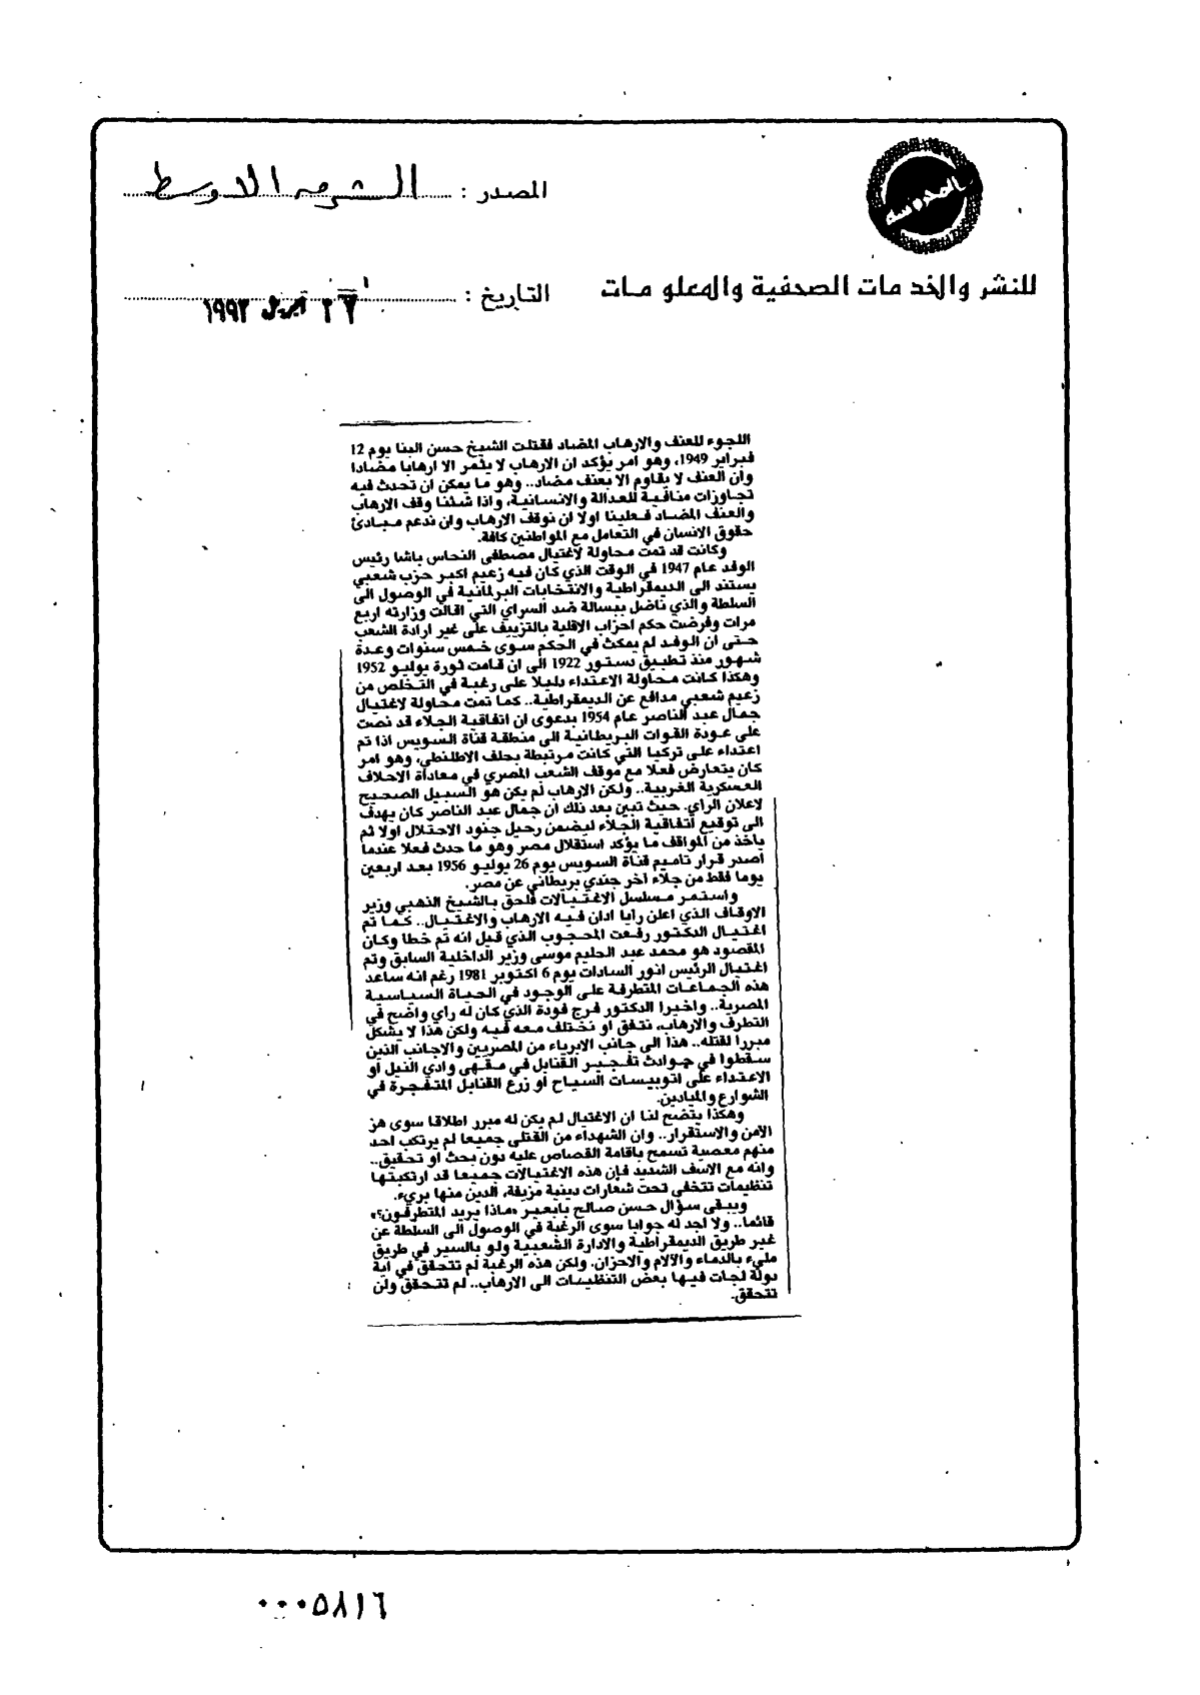 المصدر : الشرق الاوسط
للنشر والخدمات الصحفية والمعلومات
التاريخ : ٢٦ ابريل ١٩٩٣
اللجوء للعنف والارهاب المضاد فقتلت الشيخ حسن البنا يوم 12
فبراير 1949، وهو امر يؤكد ان الارهاب لا يثمر الا ارهابا مضادا
وان العنف لا يقاوم الا بعنف مضاد.. وهو ما يمكن ان تحدث فيه
تجاوزات منافية للعدالة والانسانية، واذا شئنا وقف الارهاب
والعنف المضاد فعلينا اولا ان نوقف الارهاب وان ندعم مبادئ
حقوق الانسان في التعامل مع المواطنين كافة.
وكانت قد تمت محاولة لاغتيال مصطفى النحاس باشا رئيس
الوفد عام 1947 في الوقت الذي كان فيه زعيم اكبر حزب شعبي
يستند الى الديمقراطية والانتخابات البرلمانية في الوصول الى
السلطة والذي ناضل ببسالة ضد السراي التي اقالت وزارته اربع
مرات وفرضت حكم احزاب الاقلية بالتزييف على غير ارادة الشعب
حتى ان الوفد لم يمكث في الحكم سوى خمس سنوات وعدة
شهور منذ تطبيق دستور 1922 الى ان قامت ثورة يوليو 1952
وهكذا كانت محاولة الاعتداء دليلا على رغبة في التخلص من
زعيم شعبي مدافع عن الديمقراطية.. كما تمت محاولة لاغتيال
جمال عبد الناصر عام 1954 بدعوى ان اتفاقية الجلاء قد نصت
على عودة القوات البريطانية الى منطقة قناة السويس اذا تم
اعتداء على تركيا التي كانت مرتبطة بحلف الاطلنطي، وهو امر
كان يتعارض فعلا مع موقف الشعب المصري في معاداة الاحلاف
العسكرية الغربية.. ولكن الارهاب لم يكن هو السبيل الصحيح
لاعلان الراي. حيث تبين بعد ذلك ان جمال عبد الناصر كان يهدف
الى توقيع اتفاقية الجلاء ليضمن رحيل جنود الاحتلال اولا ثم
ياخذ من المواقف ما يؤكد استقلال مصر وهو ما حدث فعلا عندما
اصدر قرار تاميم قناة السويس يوم 26 يوليو 1956 بعد اربعين
يوما فقط من جلاء اخر جندي بريطاني عن مصر.
واستمر مسلسل الاغتيالات فلحق بالشيخ الذهبي وزير
الاوقاف الذي اعلن رايا ادان فيه الارهاب والاغتيال.. كما تم
اغتيال الدكتور رفعت المحجوب الذي قيل انه تم خطا وكان
المقصود هو محمد عبد الحليم موسى وزير الداخلية السابق وتم
اغتيال الرئيس انور السادات يوم 6 اكتوبر 1981 رغم انه ساعد
هذه الجماعات المتطرفة على الوجود في الحياة السياسية
المصرية.. واخيرا الدكتور فرج فودة الذي كان له راي واضح في
التطرف والارهاب، نتفق او نختلف معه فيه ولكن هذا لا يشكل
مبررا لقتله.. هذا الى جانب الابرياء من المصريين والاجانب الذين
سقطوا في حوادث تفجير القنابل في مقهى وادي النيل أو
الاعتداء على اتوبيسات السياح أو زرع القنابل المتفجرة في
الشوارع والميادين.
وهكذا يتضح لنا ان الاغتيال لم يكن له مبرر اطلاقا سوى هز
الامن والاستقرار.. وان الشهداء من القتلى جميعا لم يرتكب احد
منهم معصية تسمح باقامة القصاص عليه دون بحث او تحقيق..
وانه مع الاسف الشديد فإن هذه الاغتيالات جميعا قد ارتكبتها
تنظيمات تتخفى تحت شعارات دينية مزيفة، الدين منها بريء.
ويبقى سؤال حسن صالح بابعير «ماذا يريد المتطرفون؟»
قائما.. ولا اجد له جوابا سوى الرغبة في الوصول الى السلطة عن
غير طريق الديمقراطية والادارة الشعبية ولو بالسير في طريق
مليء بالدماء والآلام والاحزان. ولكن هذه الرغبة لم تتحقق في اية
دولة لجات فيها بعض التنظيمات الى الارهاب.. لم تتحقق ولن
تتحقق.
٠٠٠٥٨١٦